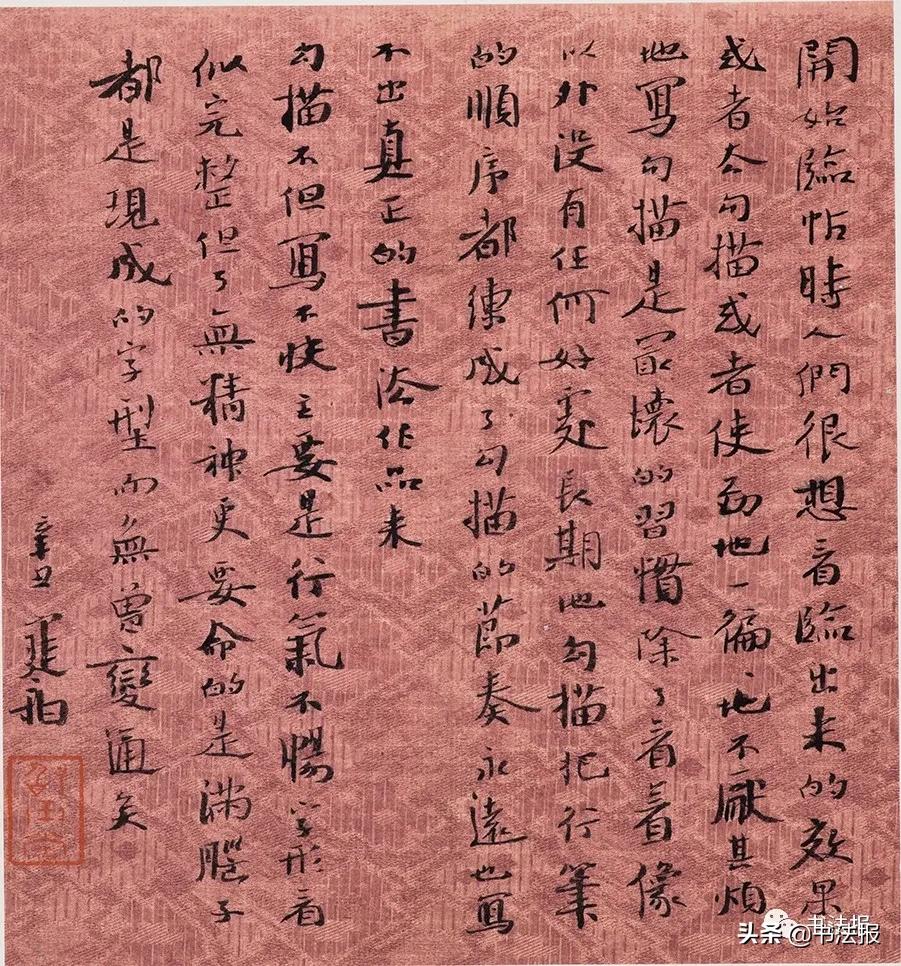 開始臨帖時人們很想看臨出来的效果
或者去勾描或者使勁地一徧〻地不厭其煩
地寫勾描是最壞的習慣除了看看像
以外没有任何好處長期地勾描把行筆
的順序都練成了勾描的節奏永遠也寫
不出真正的書法作品来
勾描不但寫不快主要是行氣不暢字形看
似完整但了無精神更要命的是滿腦子
都是現成的字型而無曾變通矣
辛丑
书法报
头条 @书法报